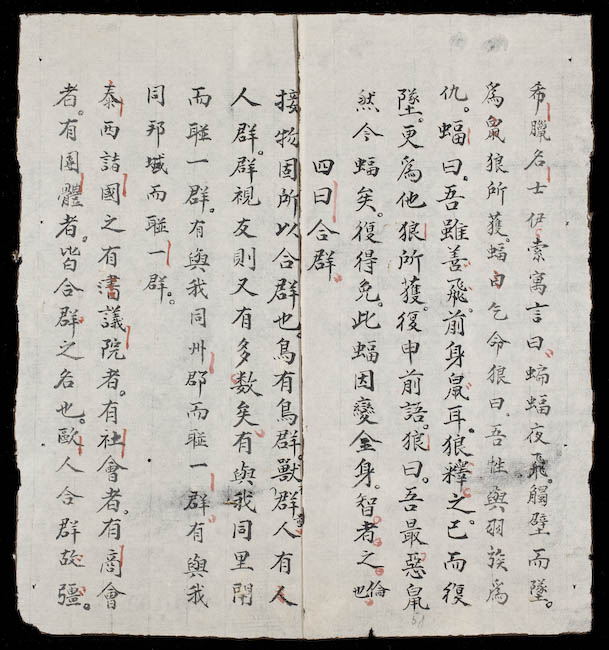 希臘名士伊索寓言曰。蝙蝠夜飛。觸壁而墜。
為鼠狼所獲。蝠乞命狼曰。吾性與羽族為
仇。蝠曰。吾雖善飛。前身鼠耳。狼釋之。已而復
墜。更為他狼所獲。復申前語。狼曰。吾最惡鼠
然今蝠矣。復得免。此蝠因變全身。智者之倫也。
四曰合群
接物固所以合群也。鳥有鳥群。獸群人有人
人群。群視友則又有多數矣。有與我同里閈
而聯一群。有與我同州郡而聯一群。有與我
同邦域而聯一群。
泰西諸國之有書議院者。有社會者。有商會
者。有團體者。皆合群之名也。歐人合群故彊。
51